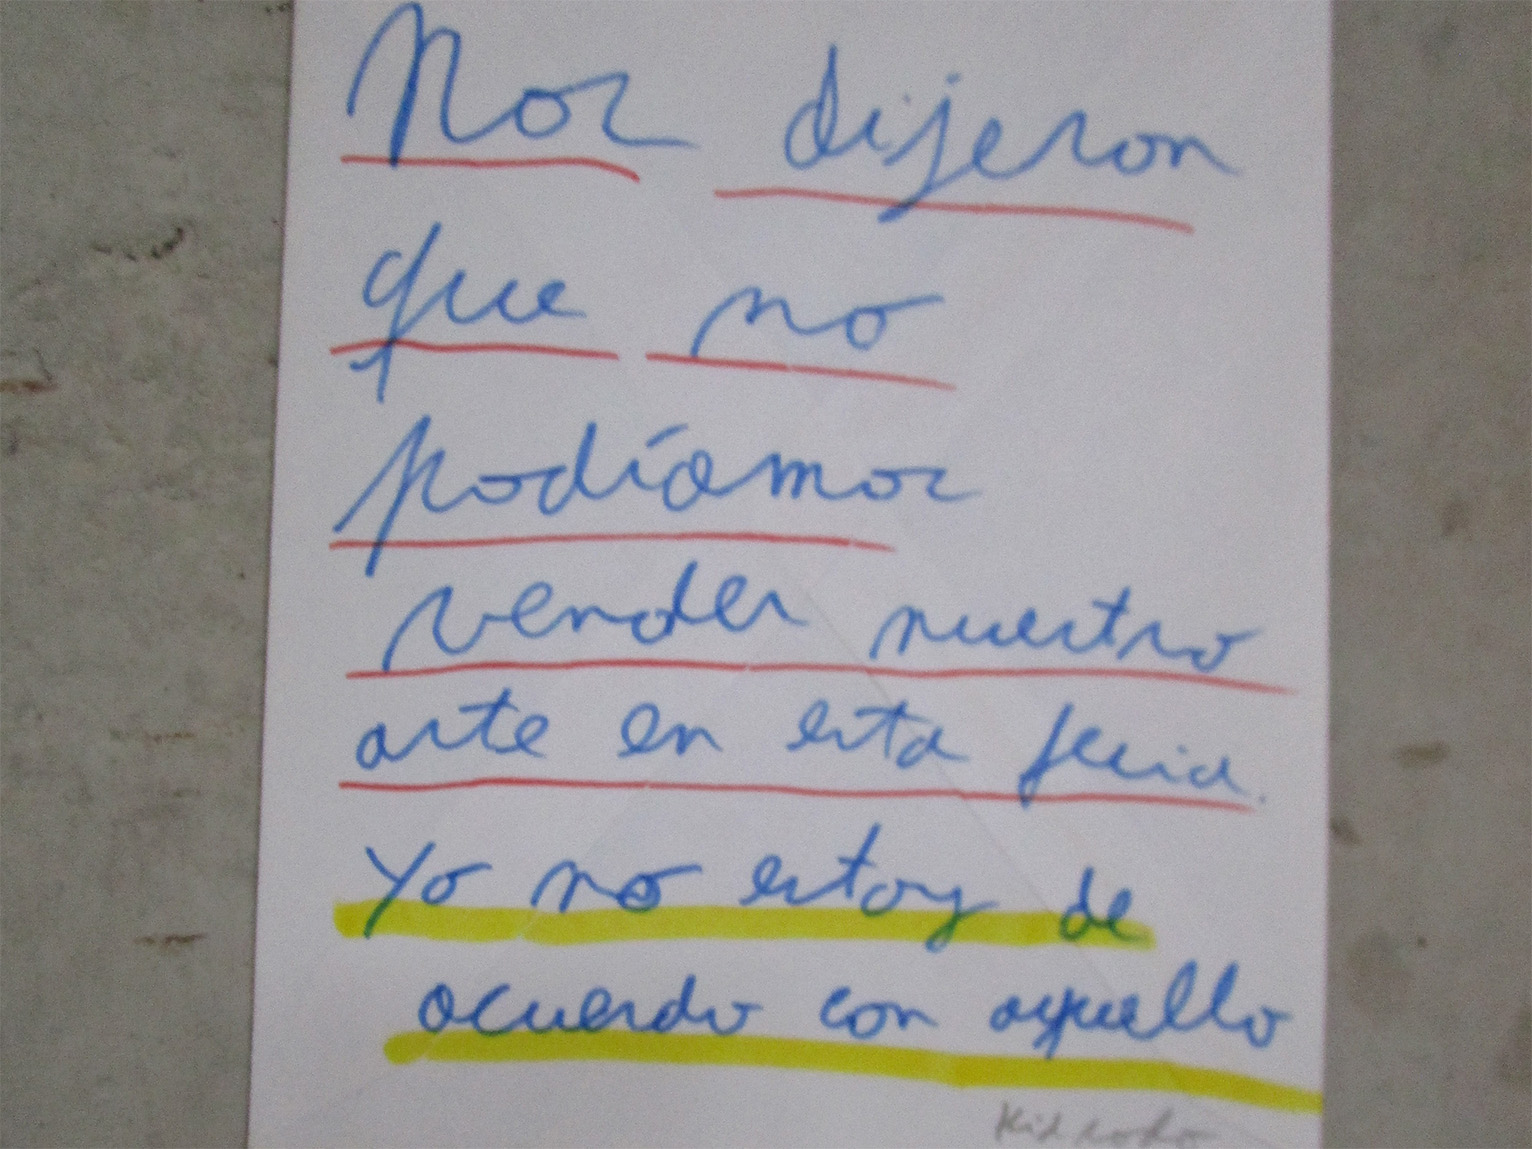 Nos dijeron
que no
podíamos
vender nuestro
arte en esta feria.
Yo no estoy de
acuerdo con aquello